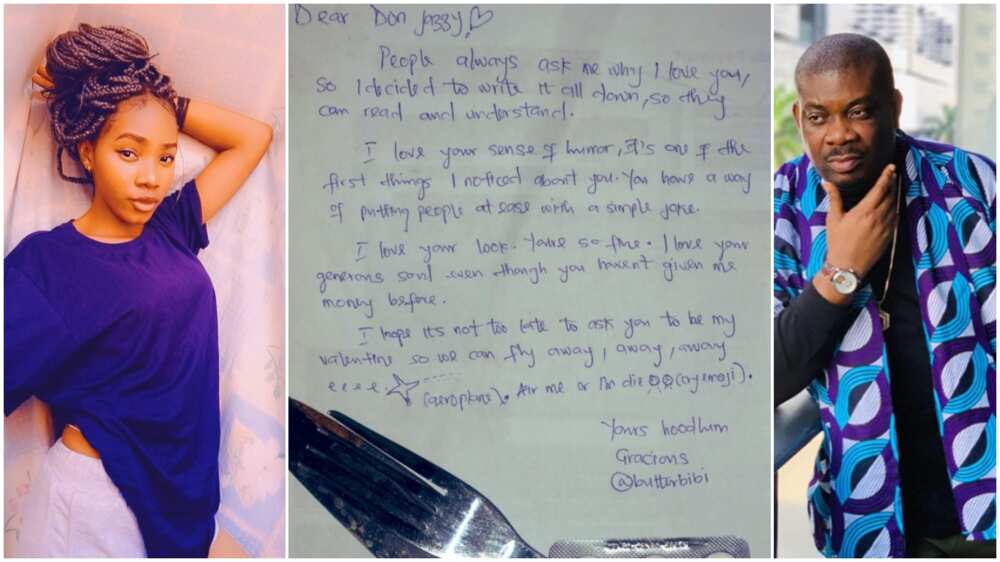 Dear Don Jazzy,
People always ask me why I love you,
so I decided to write it all down, so they
can read and understand.
I love your sense of humor, It's one of the
first things I noticed about you. You have a way
of putting people at ease with a simple joke.
I love your look. You're so fine. I love your
generous soul even though you haven't given me
money before.
I hope it's not too late to ask you to be my
valentine so we can fly away, away, away
eeee.
(aeroplane). Air me or I'm die (cry emoji).
Yours hoodlum
Gracious
@buttarbibi